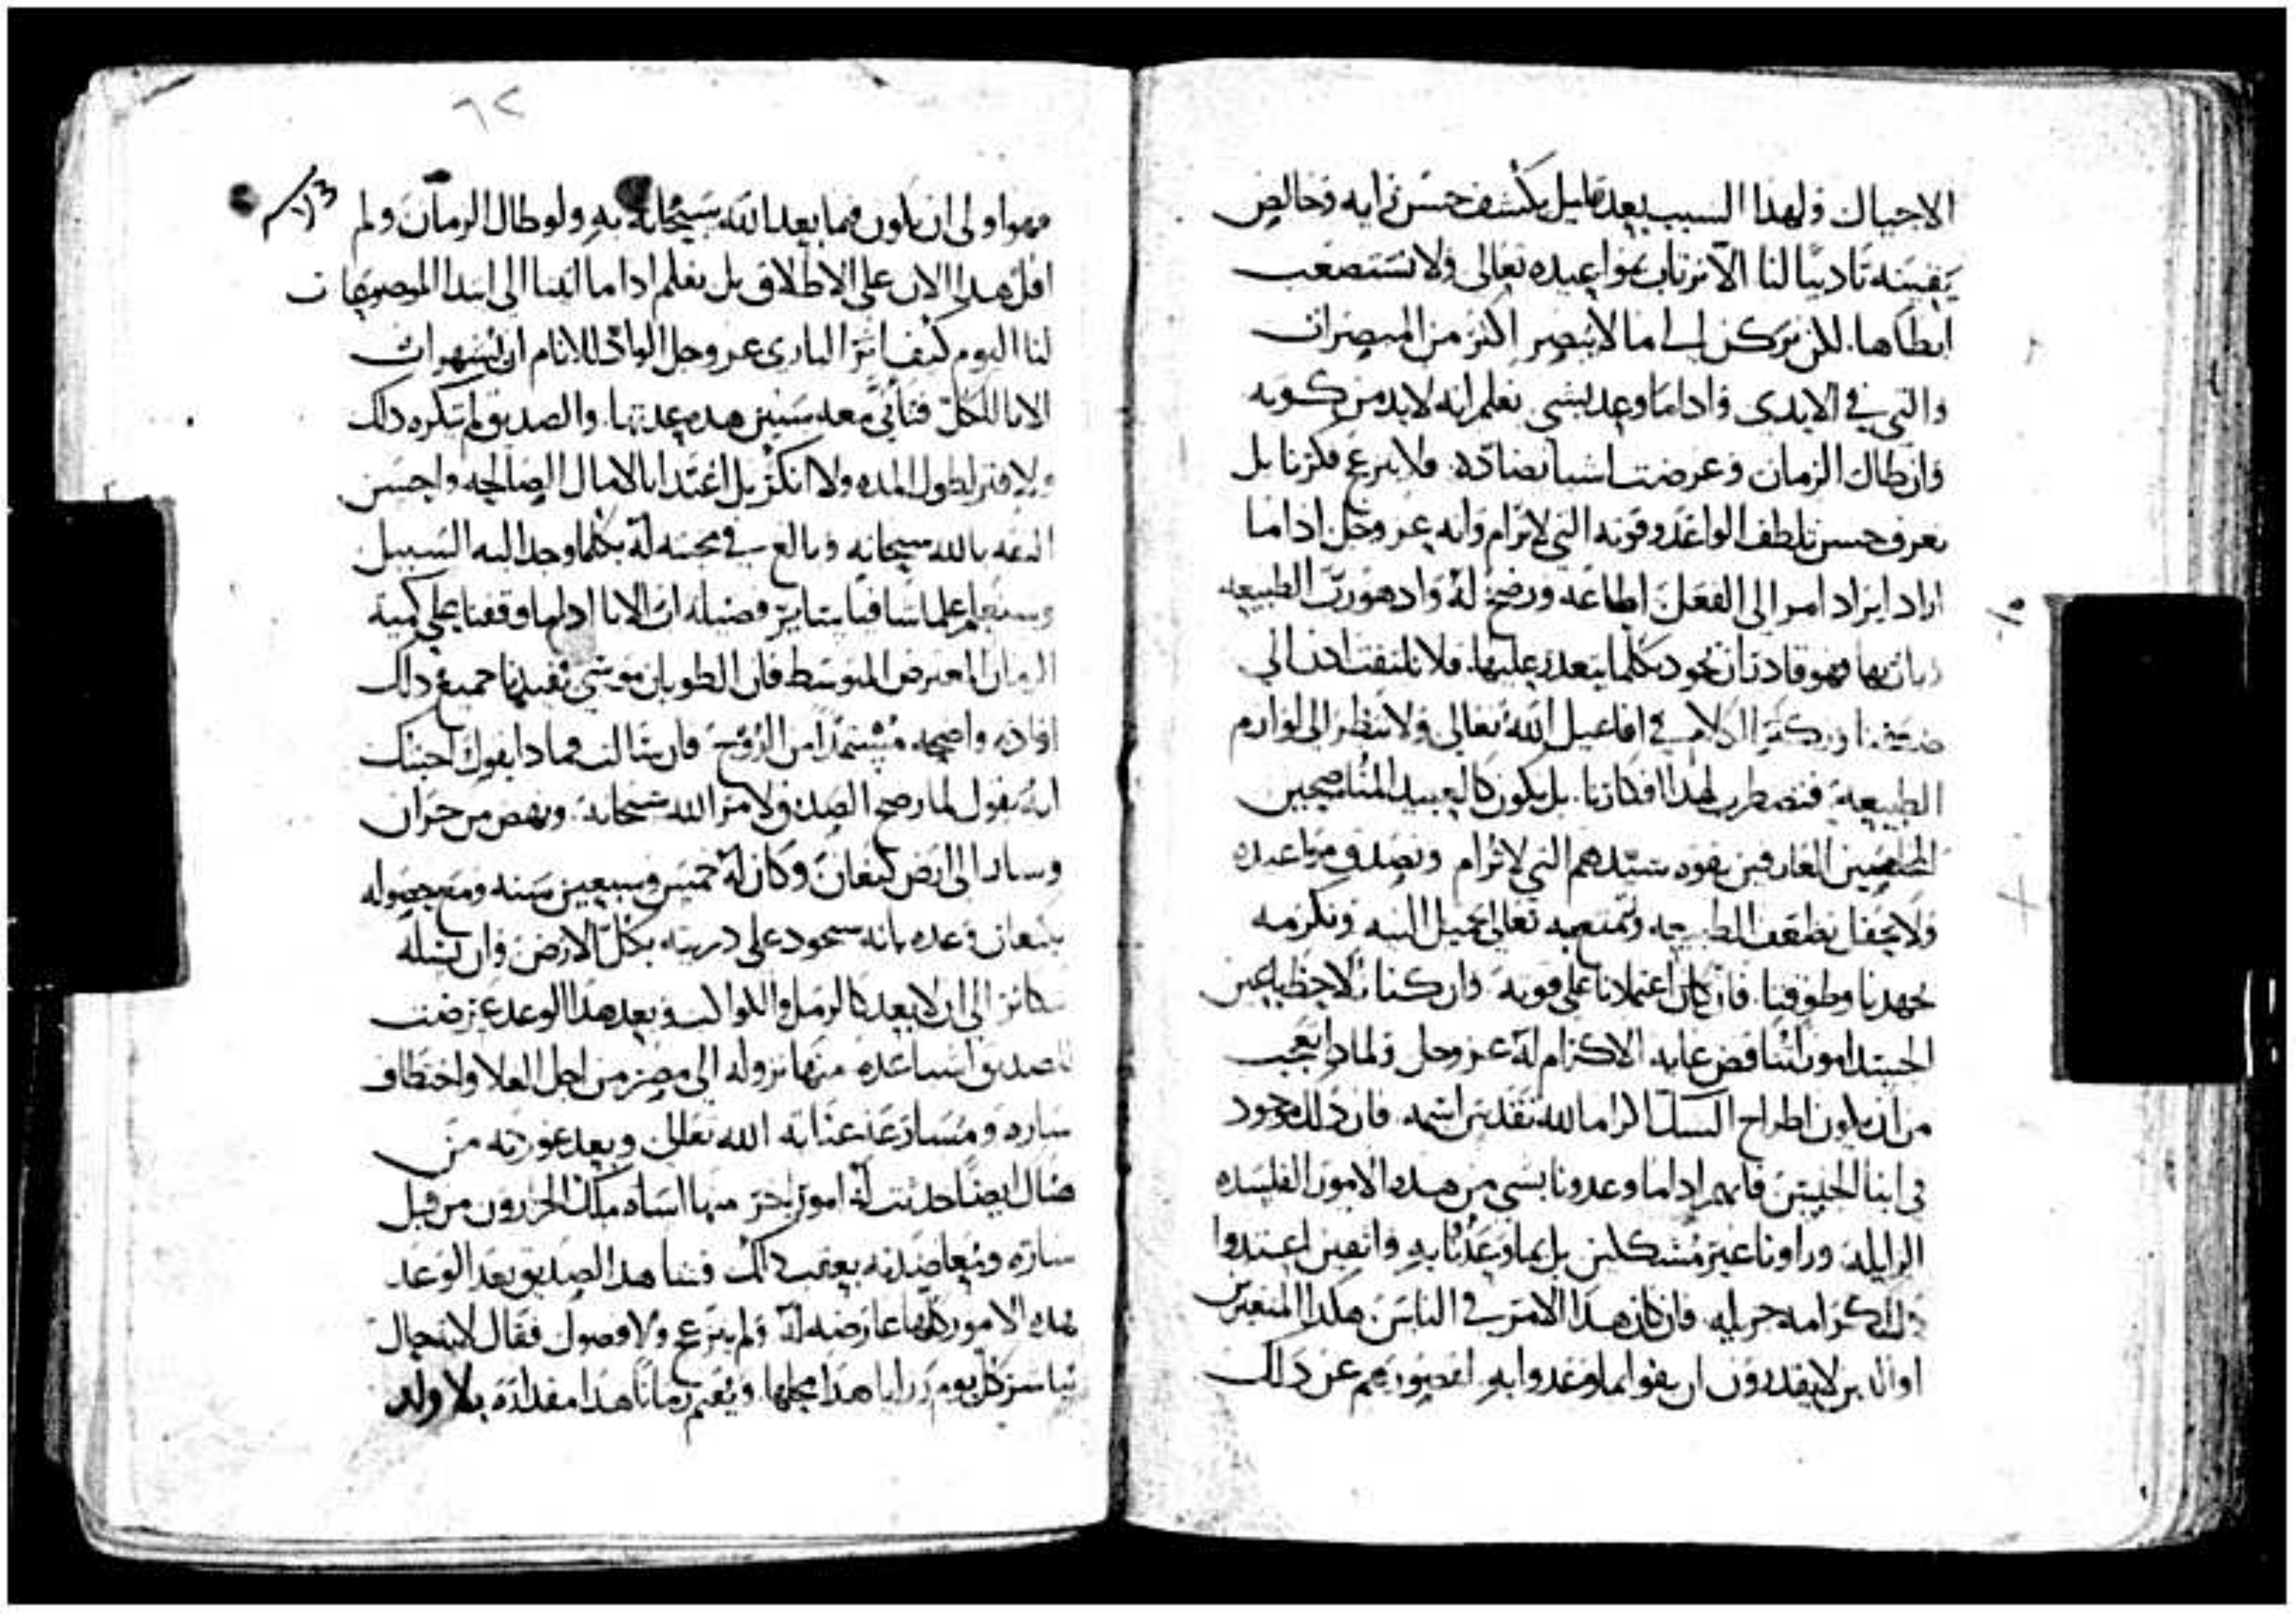 الاجيال ولهذا السبب بعد قليل يكشف حسن رايه وخالص
يقينه تاديبا لنا الا نرتاب بمواعيده تعالى ولا نستصعب
ابطاها. لكن نركن الى ما لا يبصر اكثر من المبصرات
والتي في الايدى واذا ما وعد بشي نعلم انه لا بد من كونه
وان طال الزمان وعرضت اشيا تضاده. ولا يترع فكرنا بل
نعرف حسن تلطف الواعد وقوته التي لا ترام وانه عز وجل اذا ما
اراد ايراد امر الى الفعل اطاعه ورضخ له واذ هو رب الطبيعه
وباريها وهو قادر ان يجود بكلما يتعذر عليها. فلا نلتفت اذن الى
ضعفنا ونكثر الكلام في افاعيل الله تعالى ولا ننظر الى لوازم
الطبيعه فتضطرب لهذا افكارنا. بل نكون كالعبيد المناصحين
المخلصين العارفين بقوه سيدهم التي لا ترام ونصدق مواعيده
ولا نحفل بضعف الطبيعه ونمنحه تعالى جميل النيه ونكرمه
بجهدنا وطوقنا. فان كان اعتمادنا على قوته وان كنا نلاحظ باعين
الجسد امور تناقض غايه الاكرام له عز وجل ولماذا تعجب
من ان يكون اطراح الشك اكراما لله تقدس اسمه. فان ذلك موجود
في ابنا الجنس فانهم اذا ما وعدونا بشي من هذه الامور الفاسده
الزايله وراونا غير مشككين بل بما وعدنا به واثقين اعتدوا
ذلك كرامه جزيله. فان كان هذا الامر في الناس هكذا المتغيرين
اوالذين لا يقدرون ان يفوا بما وعدوا به لقصورهم عن ذلك
٦٢
فهو اولى ان يكون فيما يعد الله سبحانه به ولو طال الزمان ولم
اقل هذا الان على الاطلاق بل نعلم اذا ما اتينا الى ابتدا الموضوعات
لنا اليوم كيف اثر الباري عز وجل الواد للانام ان يشهر اب
الابا للكل فتانى معه سنين هذه عدتها. والصديق لم يكره ذلك
ولا فتر لطول المده ولا انكر بل اغتدا بالامال الصالحه واحسن
الثقه بالله سبحانه وبالغ في محبته له بكلما وجد اليه السبيل
وسنعلم علما شافيا ساير فضيله اب الابا اذا ما وقفنا على كميه
الزمان المعترض المتوسط فان الطوبان موسى يفيدنا جميع ذلك
افاده واضحه مستمدا من الروح فان سالت فما ذا يقول اجبتك
انه يقول لما رضخ الصديق لامر الله سبحانه. ونهض من حران
وسار الى ارض كنعان وكان له خمس وسبعين سنه ومع حصوله
بكنعان وعده بانه سيجود على ذريته بكل الارض وان نسله
يتكاثر الى ان لا يعد كالرمل والكواكب وبعد هذا الوعد عرضت
للصديق اشيا عده منها نزوله الى مصر من اجل الغلا واختطاف
ساره ومسارعه عنايه الله تعالى وبعد عودته من
هناك ايضا حدثت له امور اخر منها اساه ملك الجرارون من قبل
ساره ومعاضدته بعقب ذلك فشاهد الصديق بعد الوعد
هذه الامور كلها عارضه له ولم يترع ولا فصول فقال لابتحال
يباشر كل يوم رزايا هذا محلها. ويقيم زمانا هذا مقداره بلا ولد